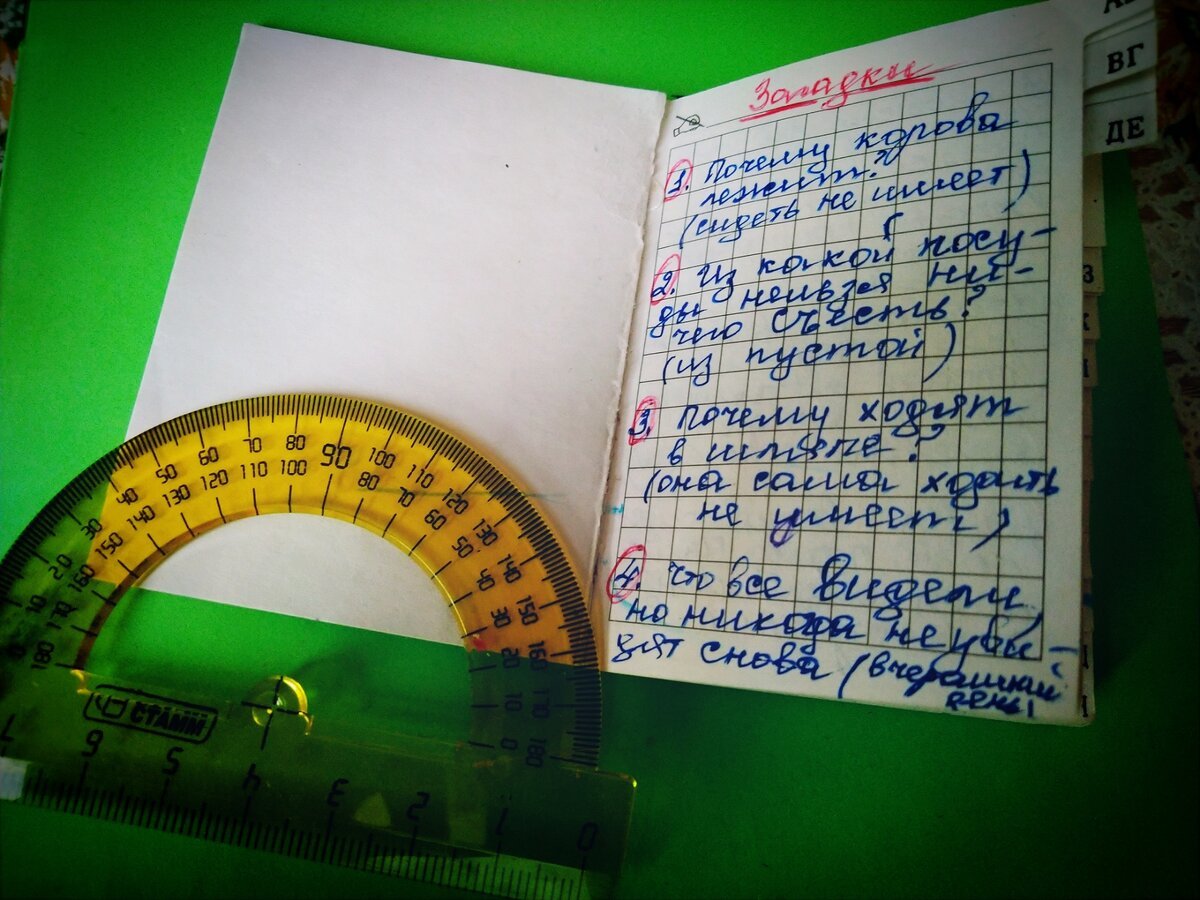 Загадки
1. Почему корова
лежит?
(сидеть не умеет)
2. Из какой посу-
ды нельзя ни-
чего съесть?
(из пустой)
3. Почему ходят
в шляпе?
(она сама ходить
не умеет)
4. Что все видели,
но никогда не уви-
дят снова (вчерашний
день)
ВГ
ДЕ
З
К
40 50 60 70 80 90 100 110 120 130 140 150 160 170 180
180 170 160 150 140 130 120 110 100 80 70 60 50 40 30 20 10 0
10 20 30
СТАММ
7 6 5 4 3 2 1 0